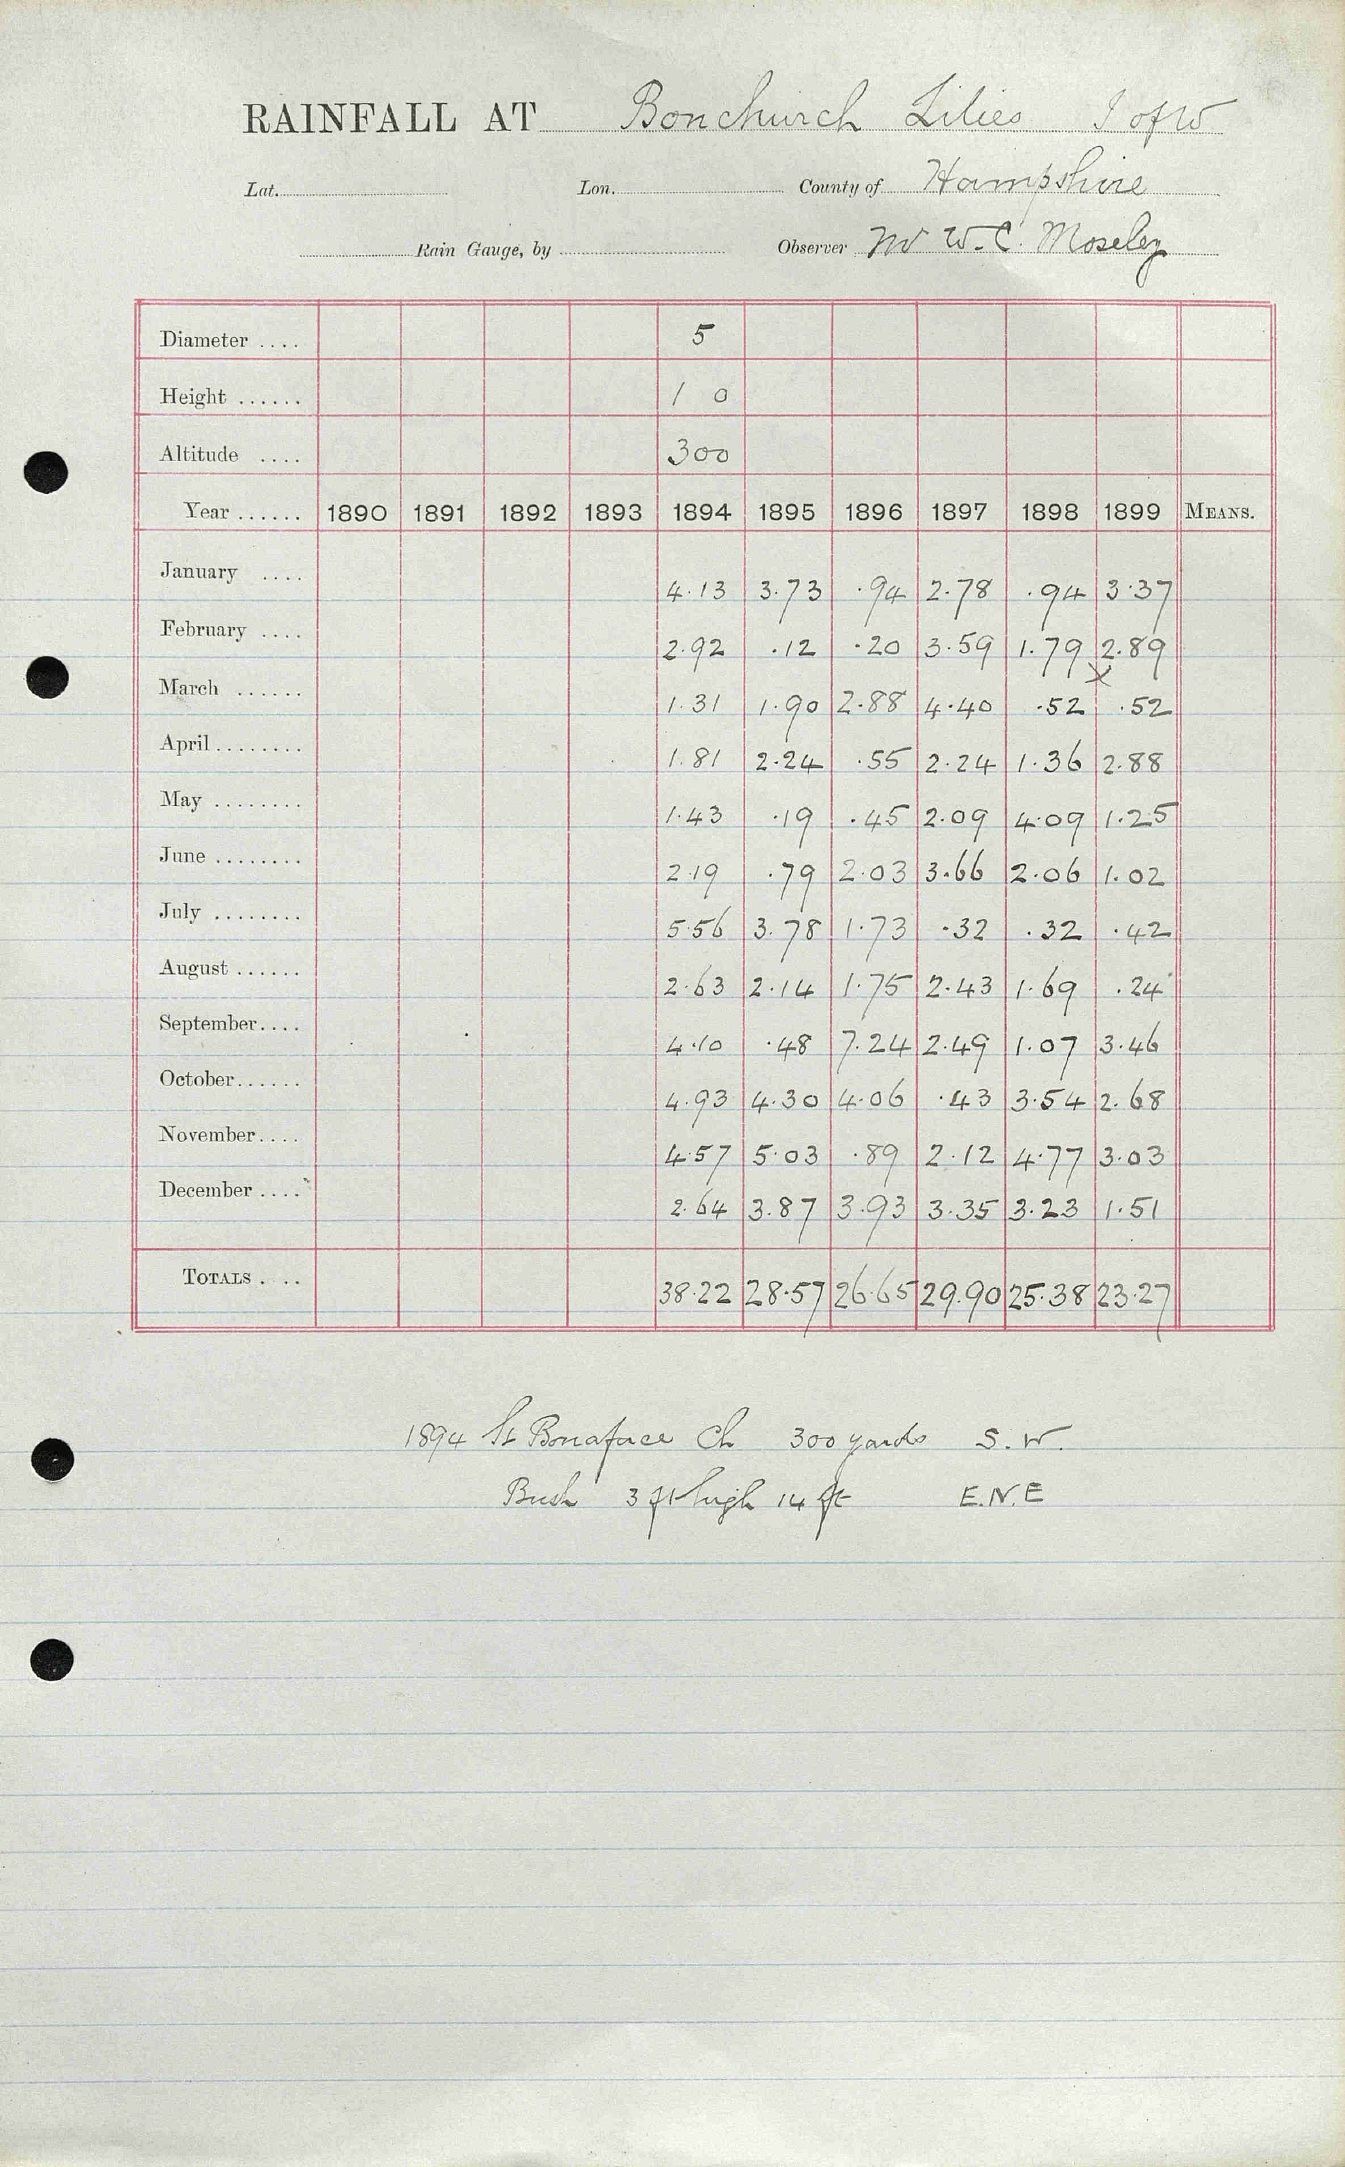 RAINFALL AT Bonchurch Lilies I of W
Lat. Lon. County of Hampshire
Rain Gauge, by Observer Mr W. C. Moseley
Diameter .... 5
Height ...... 1 0
Altitude .... 300
Year ...... 1890 1891 1892 1893 1894 1895 1896 1897 1898 1899 MEANS.
January .... 4.13 3.73 .94 2.78 .94 3.37
February .... 2.92 .12 .20 3.59 1.79 2.89
x
March ...... 1.31 1.90 2.88 4.40 .52 .52
April ........ 1.81 2.24 .55 2.24 1.36 2.88
May ........ 1.43 .19 .45 2.09 4.09 1.25
June ........ 2.19 .79 2.03 3.66 2.06 1.02
July ........ 5.56 3.78 1.73 .32 .32 .42
August ...... 2.63 2.14 1.75 2.43 1.69 .24
September.... 4.10 .48 7.24 2.49 1.07 3.46
October...... 4.93 4.30 4.06 .43 3.54 2.68
November.... 4.57 5.03 .89 2.12 4.77 3.03
December .... 2.64 3.87 3.93 3.35 3.23 1.51
TOTALS . .. 38.22 28.57 26.65 29.90 25.38 23.27
1894 St Bonaface Ch 300 yards S.W.
Bush 3 ft high 14 ft E.N.E